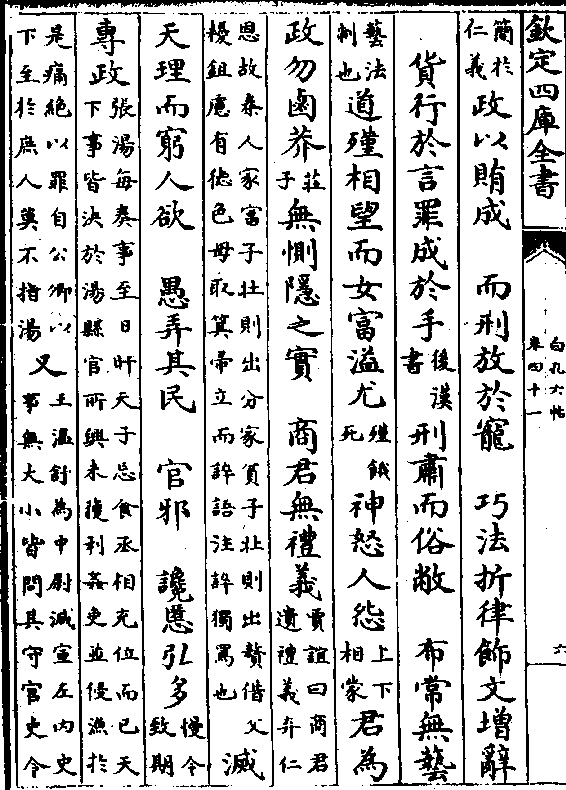 欽定四庫全書
白孔六帖
卷四十一
六
簡於仁義 政以賄成 而刑放於寵 巧法折律飾文增辭
貨行於言罪成於手 後漢書 刑肅而俗敝 布常無藝
藝法制也 道殣相望而女富溢尤 殣餓死 神怒人怨 上下相蒙 君為
政勿鹵莽 莊子 無惻隱之實 商君無禮義 賈誼曰商君遺禮義弃仁
恩故秦人家富子壯則出分家貧子壯則出贅借父耰鉏慮有德色母取箕帚立而誶語注誶獨罵也 滅
天理而窮人欲 愚弄其民 官邪 讒慝弘多 慢令致期
專政 張湯每奏事至日旰天子忘食丞相充位而已天下事皆決於湯縣官所興未獲利姦吏並侵漁於
是痛絕以罪自公卿以下至於庶人莫不指湯 又 王溫舒為中尉減宣左內史事無大小皆問其守官史令